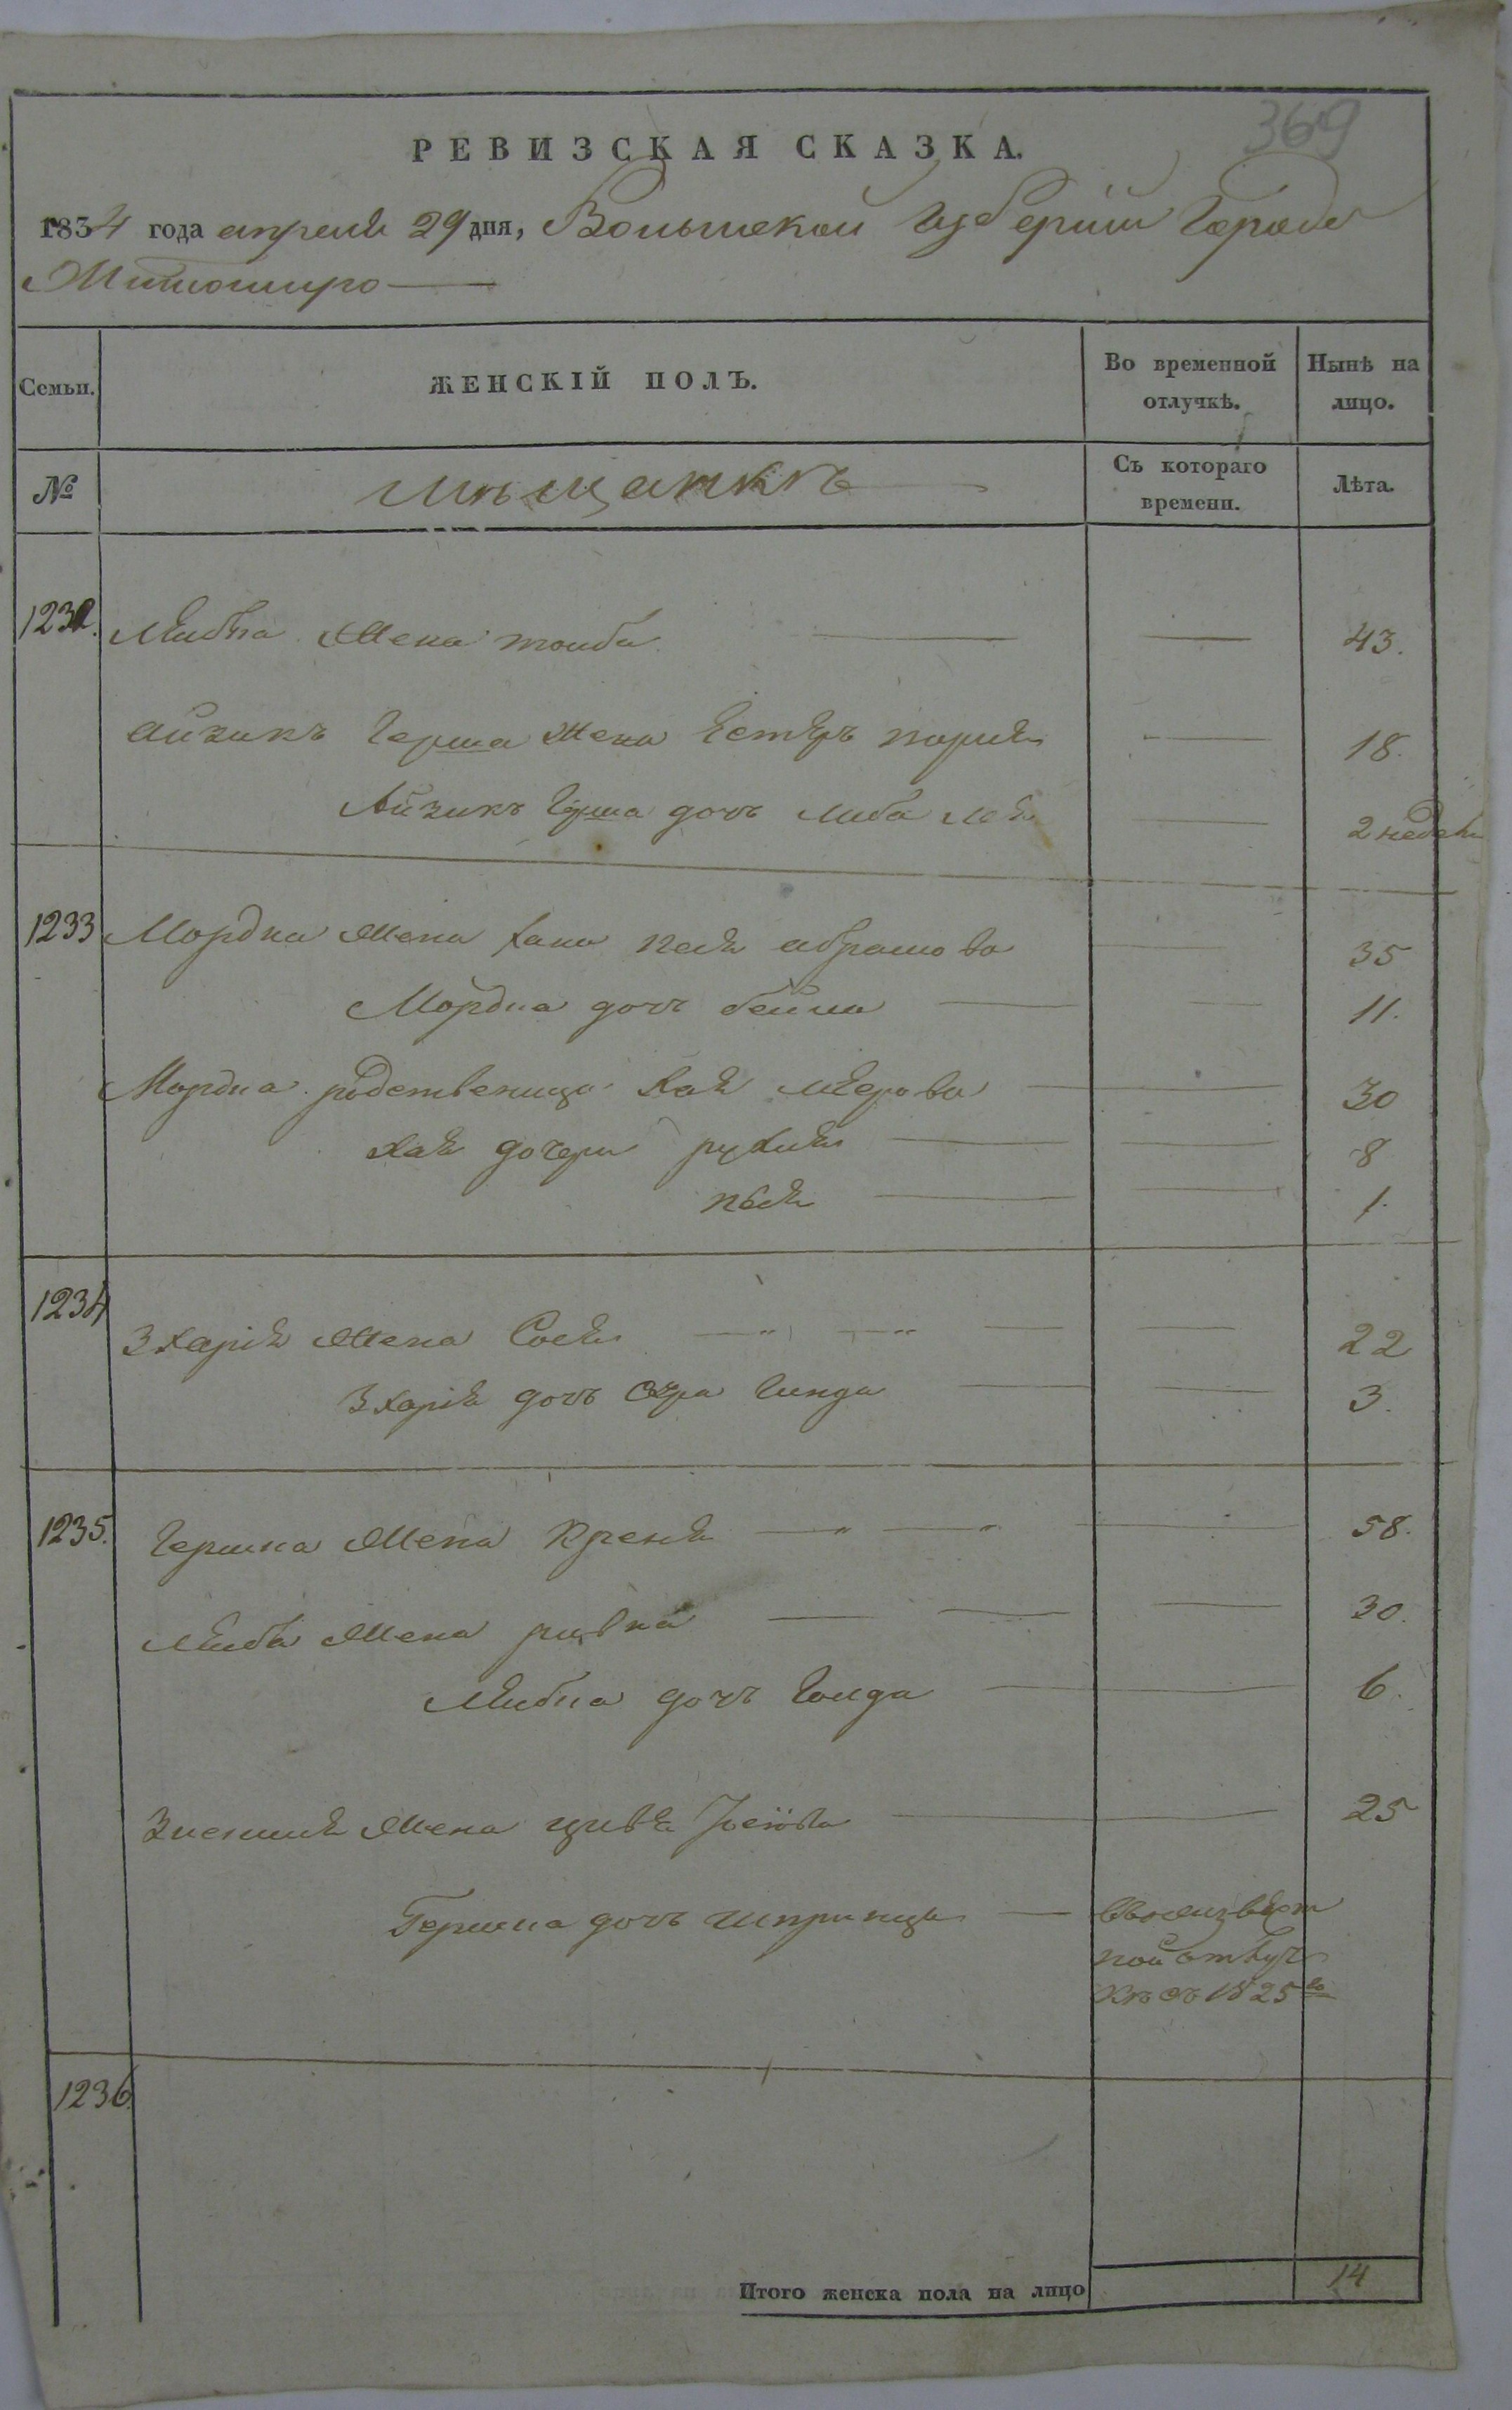 369
РЕВИЗСКАЯ СКАЗКА.
1834 года апреля 29 дня, Волынской губернiи Города
Житомира
Семьи.
ЖЕНСКІЙ ПОЛЪ.
Во временной отлучкѣ.
Нынѣ на лицо.
№
мѣщанкѣ
Съ котораго времени.
Лѣта.
1232. Лейбы жена тоиба 43.
Айзикъ Герша жена Естеръ 18.
Айзикъ Герша дочъ либа лея 2 недели
1233 Мордка жена хана песя абрамова 35
Мордка дочъ бейла 11.
Мордка родственица хая меерова 30
хая дочери рухля 8
1.
1234
Зхарія жена Сося 22
Зхарія дочъ Сура гинда 3.
1235. Гершка жена креня 58.
Лейба жена ривка 30.
Лейбка дочъ голда 6.
жена цивя 25
Гершка дочъ шпринца
в неизвѣст
ной отлуч
кѣ съ 1825го
1236.
Итого женска пола на лицо 14